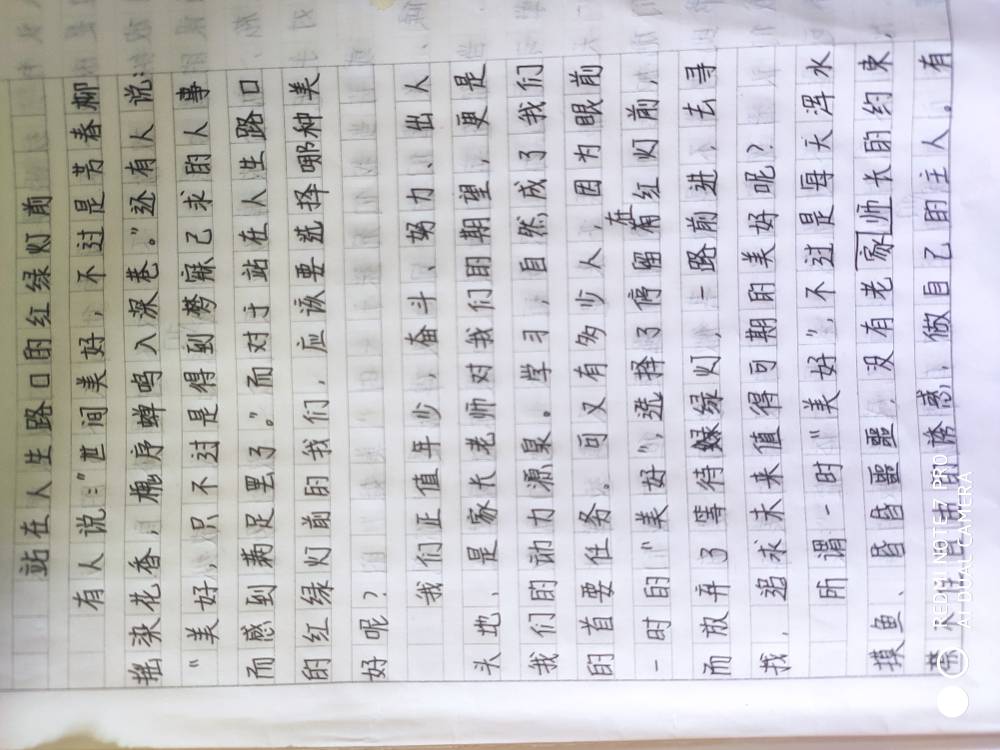 站在人生路口的红绿灯前
有人说:"世间美好,不过是芳春柳
摇染花香,槐序蝉鸣入深巷。"还有人说:
"美好,只不过是得到梦寐已求的人事
而感到满足罢了。"而对于站在人生路口
的红绿灯前的我们,应该要选择哪种美
好呢?
我们正值年少,奋斗、努力、出人
头地、是家长老师对我们的期望,更是
我们的动力源泉。学习,自然成了我们
的首要任务。可又有多少人,因为眼前
一时的"美好",选择了停留在红灯前,
而放弃了等待绿灯,一路前进,去寻
找,追求未来值得可期的美好呢?
所谓一时"美好",不过是每天浑水
摸鱼、昏昏噩噩,没有老家师长的约束
禁不住后的诱惑,做自己的主人。有
REDMI NOTE 7 PRO
AI DUAL CAMERA